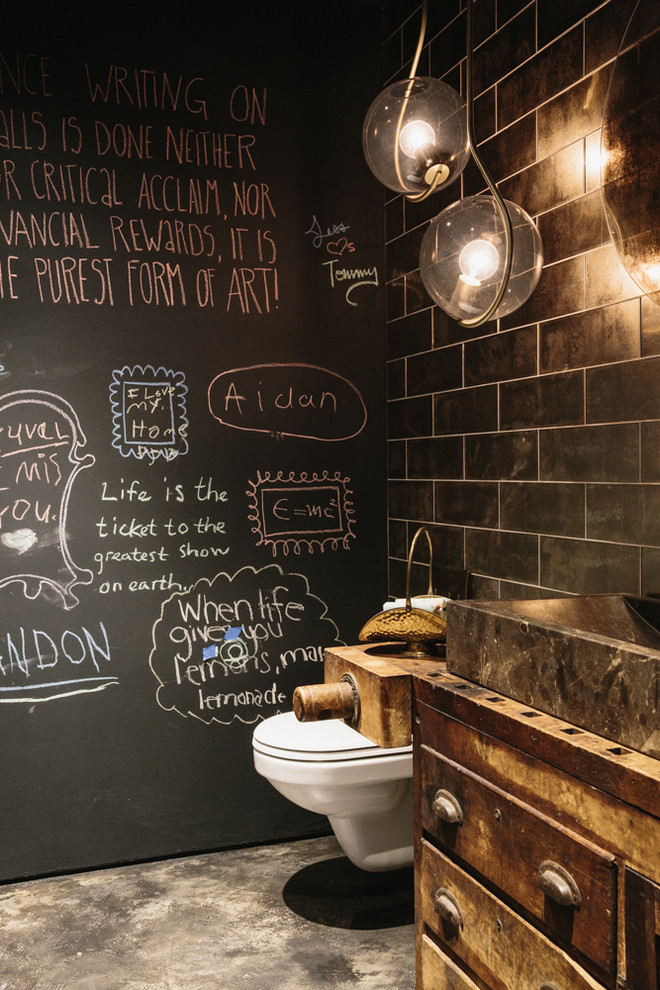 NCE WRITING ON
aLLS IS DONE NEITHER
OR CRITICaL ACCLAIM, NOR
NANCIAL REWARDS, IT IS
HE PUREST FORM OF ART!
Jess
♡s
Tommy
I Love
my
Home
Aidan
uval
I mis
you.
E=mc²
Life is the
ticket to the
greatest show
on earth.
ANDON
When life
gives you
lemons, make
lemonade